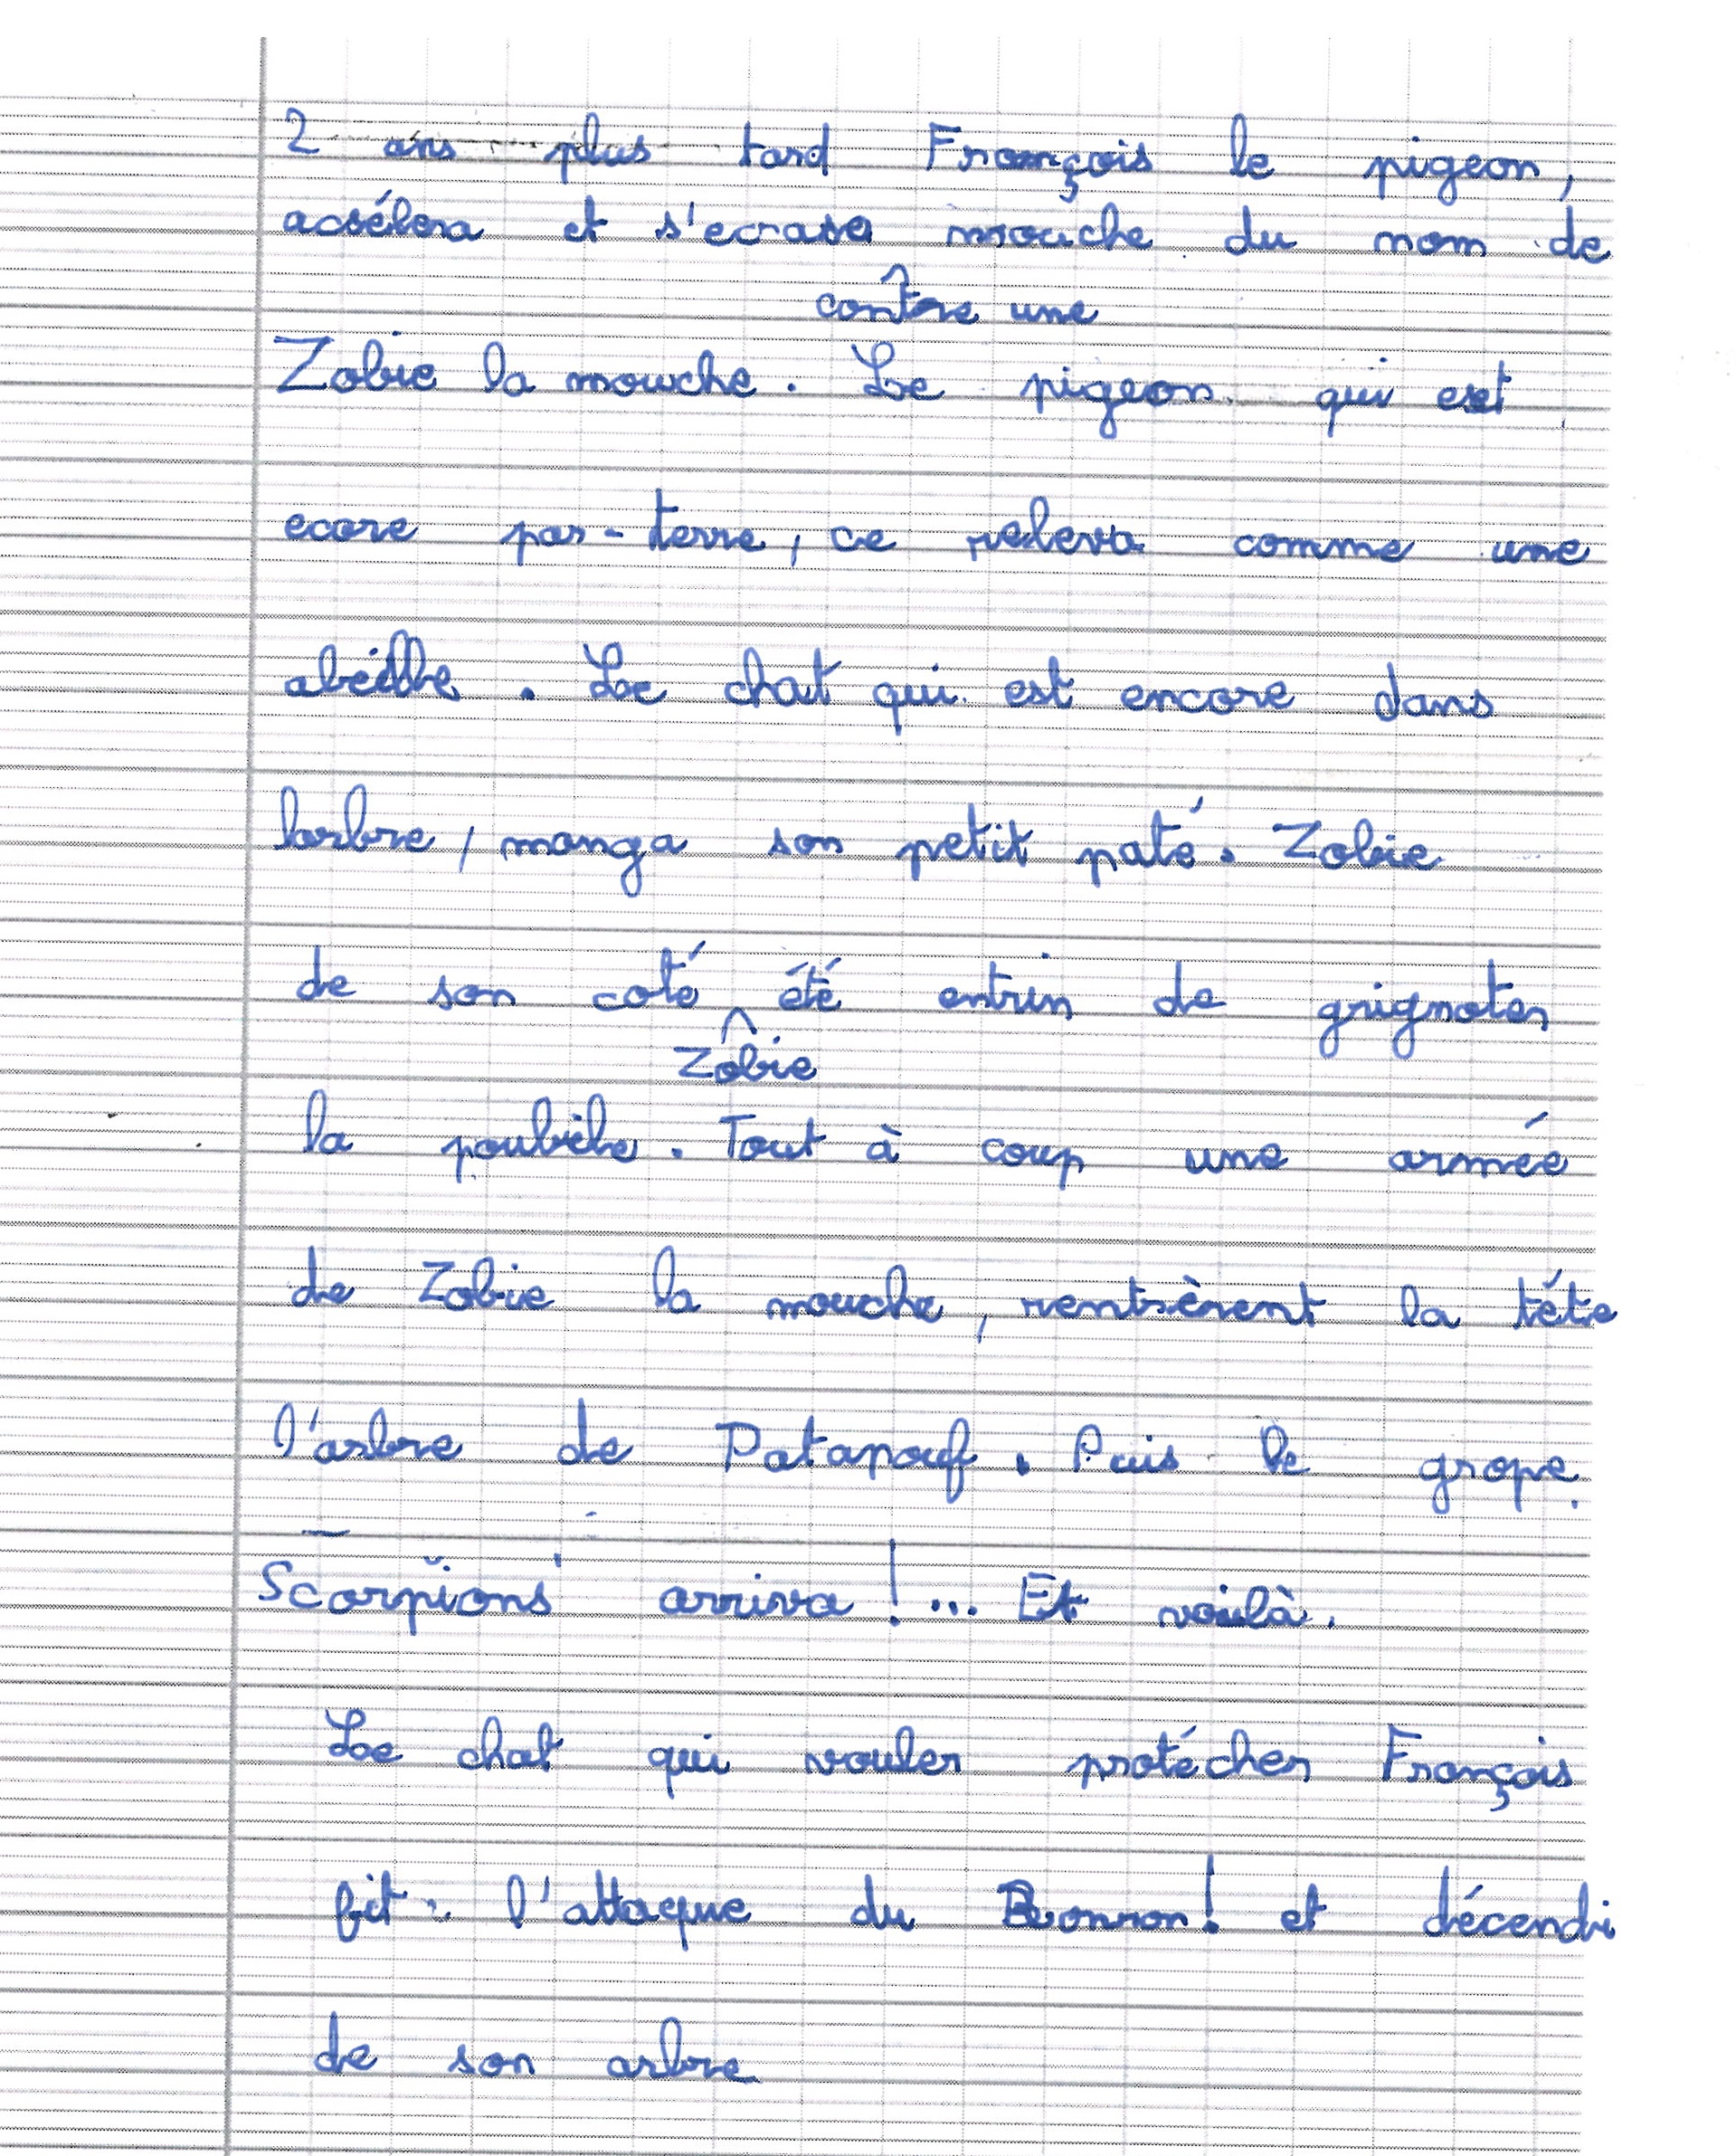 2 ans plus tard François le pigeon,
accéléra et s'ecrasa mouche du nom de
contre une
Zobie la mouche. Le pigeon qui est
ecore par-terre, ce releva comme une
abéille. Le chat qui est encore dans
larbre, manga son petit paté. Zobie
de son coté été entrin de grignoter
Zobie
la poubèle. Tout à coup une armée
de Zobie la mouche, rentrèrent la téte
l'arbre de Patapouf. Puis le grope
Scorpions arriva !... Et voilà.
Le chat qui vouler protécher François
fit : l'attaque du Ronron! et décendi
de son arbre